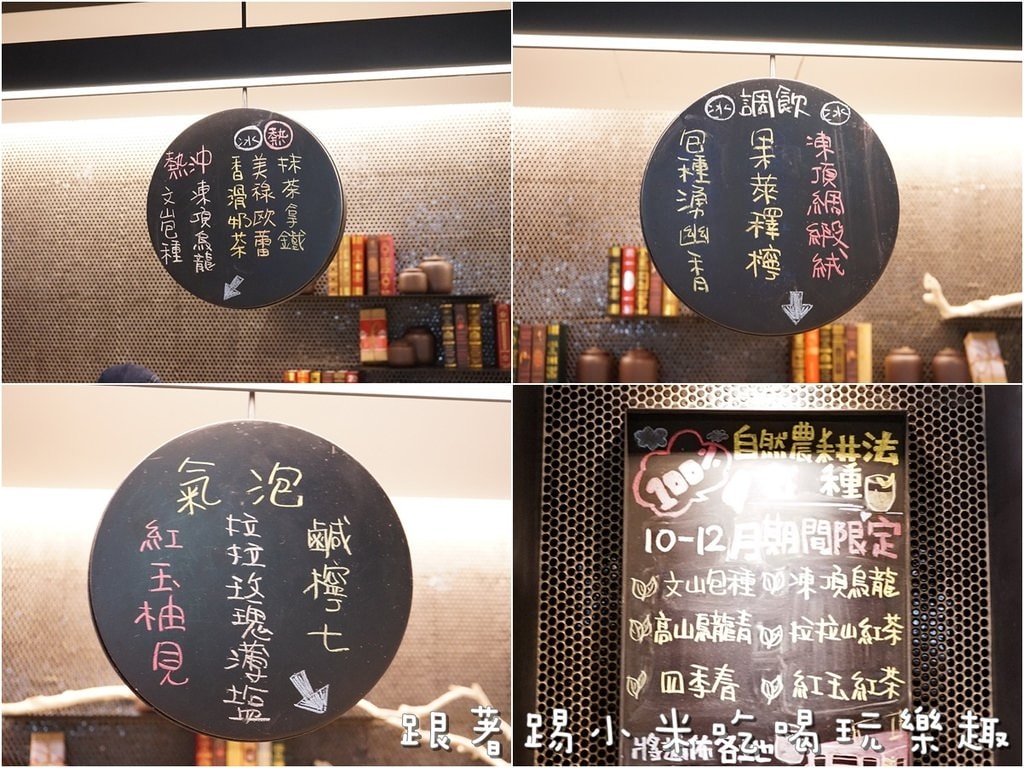 冰 熱
抹茶拿鐵
美祿歐蕾
香滑奶茶
熱沖
凍頂烏龍
文山包種
冰 調飲 冰
凍頂綢緞絨
果萊釋檸
包種湧幽香
氣泡
鹹檸七
拉拉玫瑰薄塩
紅玉柚見
100%
自然農耕法
種
10-12月期間限定
文山包種 凍頂烏龍
高山烏龍青 拉拉山紅茶
四季春 紅玉紅茶
跟著踢小米吃喝玩樂趣